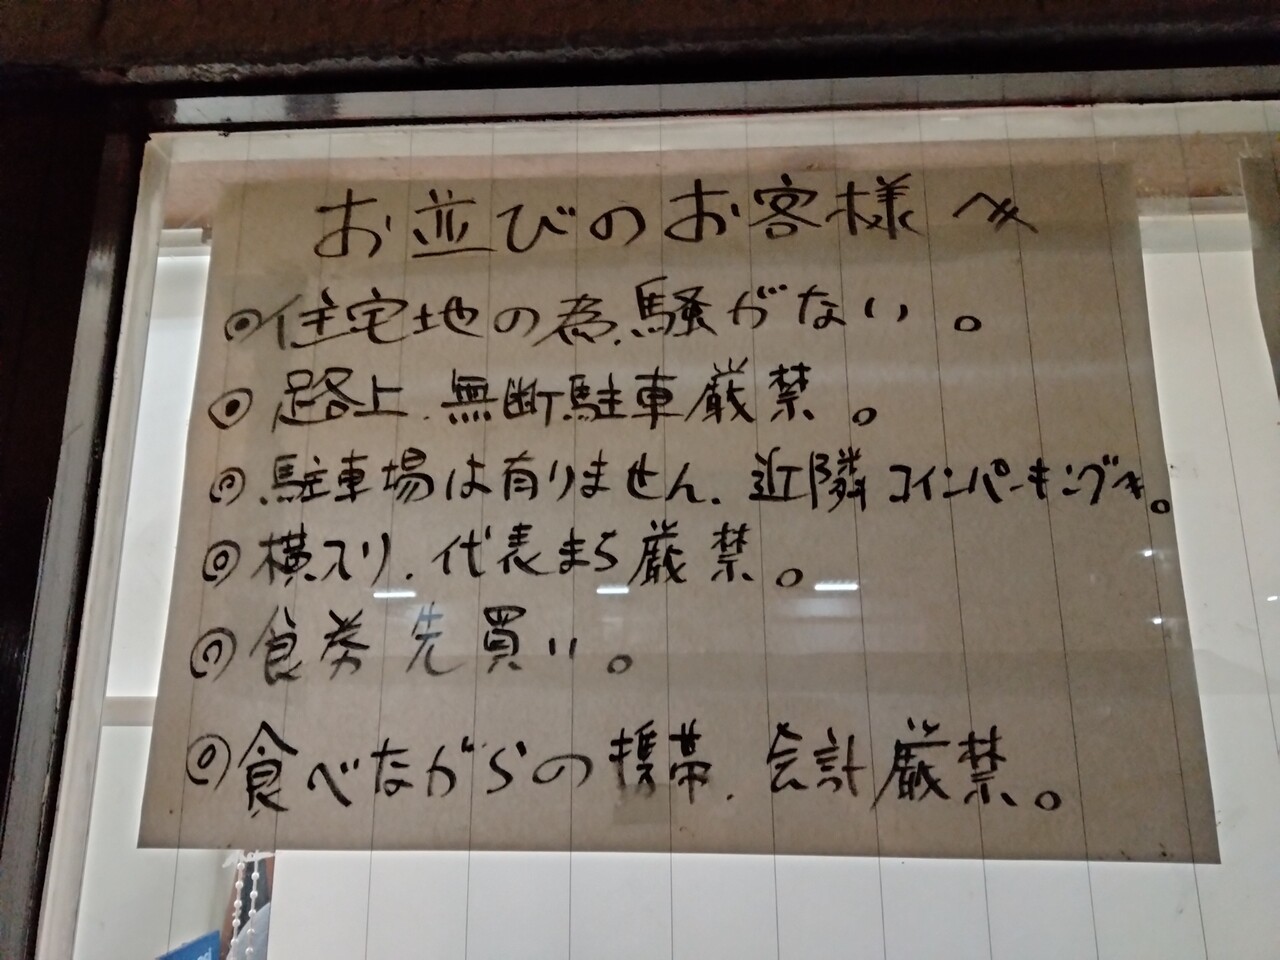 お並びのお客様へ
◎住宅地の為、騒がない。
◎路上、無断駐車厳禁。
◎駐車場は有りません、近隣コインパーキングへ。
◎横入り、代表まち厳禁。
◎食券先買い。
◎食べながらの携帯、会計厳禁。